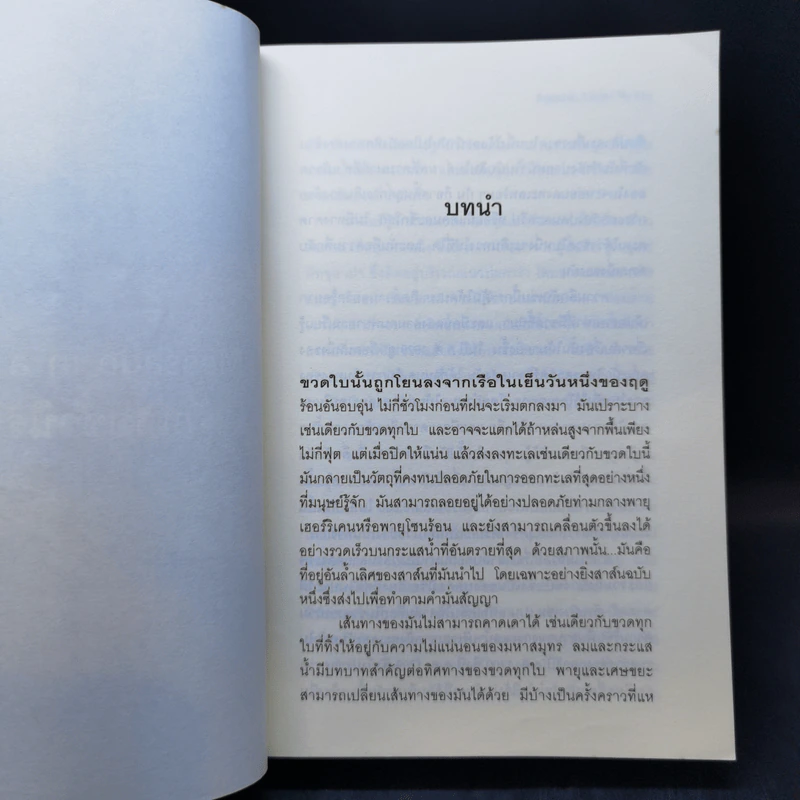 บทนำ
ขวดใบนั้นถูกโยนลงจากเรือในเย็นวันหนึ่งของฤดู
ร้อนอันอบอุ่น ไม่กี่ชั่วโมงก่อนที่ฝนจะเริ่มตกลงมา มันเปราะบาง
เช่นเดียวกับขวดทุกใบ และอาจจะแตกได้ถ้าหล่นสูงจากพื้นเพียง
ไม่กี่ฟุต แต่เมื่อปิดให้แน่น แล้วส่งลงทะเลเช่นเดียวกับขวดใบนี้
มันกลายเป็นวัตถุที่คงทนปลอดภัยในการออกทะเลที่สุดอย่างหนึ่ง
ที่มนุษย์รู้จัก มันสามารถลอยอยู่ได้อย่างปลอดภัยท่ามกลางพายุ
เฮอร์ริเคนหรือพายุโซนร้อน และยังสามารถเคลื่อนตัวขึ้นลงได้
อย่างรวดเร็วบนกระแสน้ำที่อันตรายที่สุด ด้วยสภาพนั้น...มันคือ
ที่อยู่อันล้ำเลิศของสาส์นที่มันนำไป โดยเฉพาะอย่างยิ่งสาส์นฉบับ
หนึ่งซึ่งส่งไปเพื่อทำตามคำมั่นสัญญา
เส้นทางของมันไม่สามารถคาดเดาได้ เช่นเดียวกับขวดทุก
ใบที่ทิ้งให้อยู่กับความไม่แน่นอนของมหาสมุทร ลมและกระแส
น้ำมีบทบาทสำคัญต่อทิศทางของขวดทุกใบ พายุและเศษขยะ
สามารถเปลี่ยนเส้นทางของมันได้ด้วย มีบ้างเป็นครั้งคราวที่แห